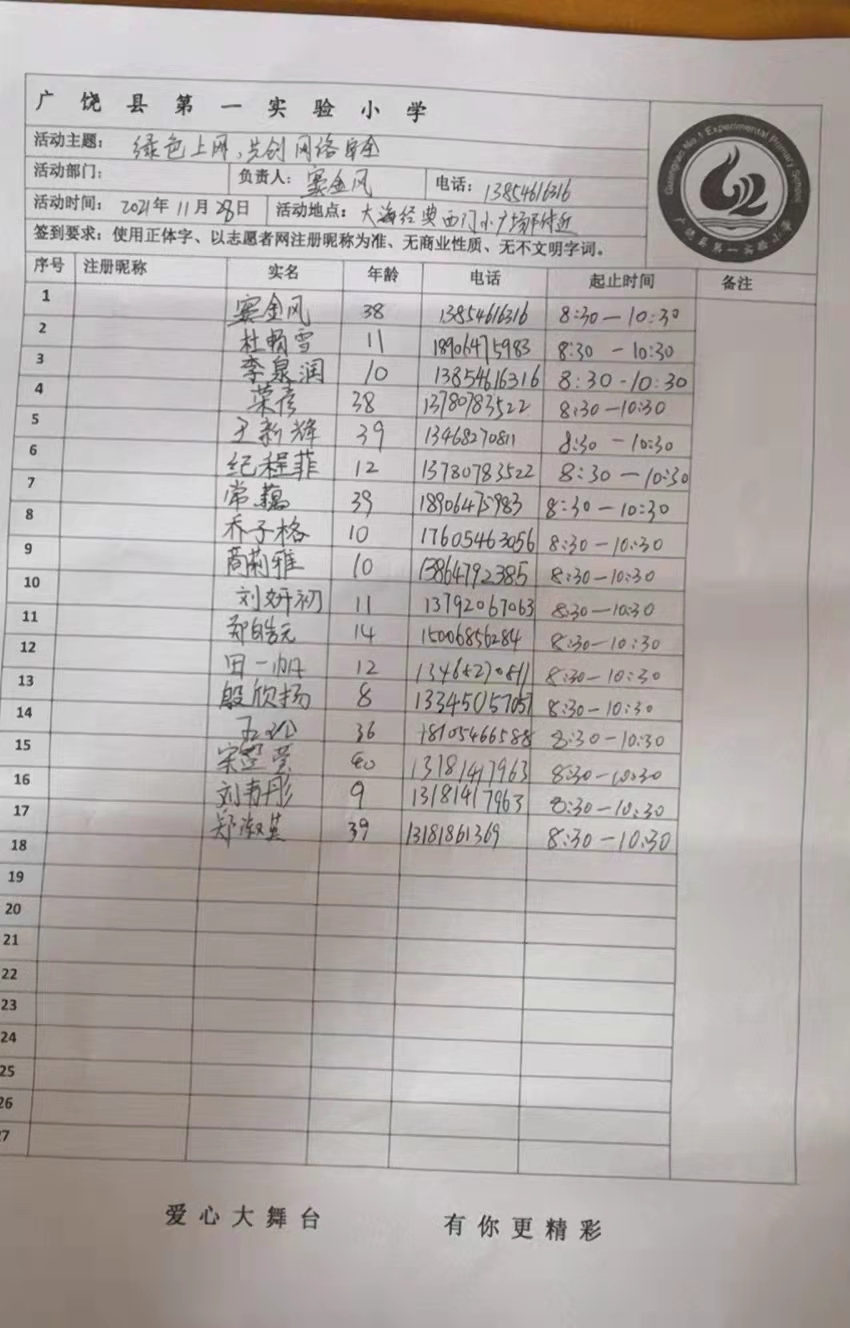 广饶县第一实验小学
活动主题：绿色上网、共创网络安全
活动部门： 负责人：窦金凤 电话：13854616316
活动时间：2021年11月28日 活动地点：大海经典西门小广场附近
签到要求：使用正体字、以志愿者网注册昵称为准、无商业性质、无不文明字词。
Guangrao No.1 Experimental Primary School
广饶县第一实验小学
序号 注册昵称 实名 年龄 电话 起止时间 备注
1 窦金凤 38 13854616316 8:30—10:30
2 杜 雪 11 18906475983 8:30—10:30
3 李泉润 10 13854616316 8:30-10:30
4 荣倩 38 13780783522 8:30—10:30
5 新辉 39 13468270811 8:30—10:30
6 纪程菲 12 13780783522 8:30—10:30
7 常 39 18906475983 8:30—10:30
8 乔子格 10 17605463056 8:30—10:30
9 雅 10 13864792385 8:30—10:30
10 刘妍初 11 13792067063 8:30—10:30
11 郑皓元 14 15006856284 8:30—10:30
12 田一帆 12 8:30—10:30
13 殷欣扬 8 13345057057 8:30—10:30
14 36 18105466588 8:30—10:30
15 宋 40 13181417963 8:30—10:30
16 刘 彤 9 13181417963 8:30—10:30
17 郑淑 39 13181861369 8:30—10:30
18
19
20
21
22
23
24
25
26
27
爱心大舞台 有你更精彩